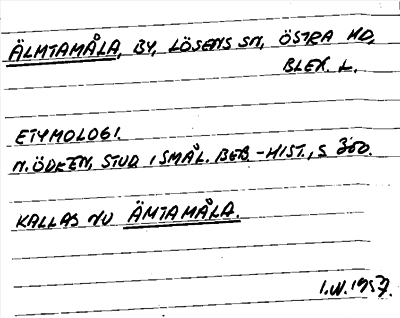 ÄLMTAMÅLA, BY, LÖSENS SN, ÖSTRA HD,
BLEK. L.
ETYMOLOGI.
N. ÖDEEN, STUD I SMÅL. BEB.-HIST., S 360.
KALLAS NU ÄMTAMÅLA.
I.W. 1957.